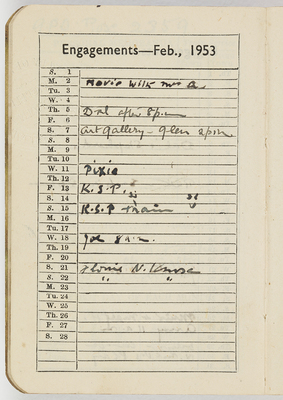 Engagements—Feb., 1953
S. 1
M. 2 Movie with Mrs A.
Tu. 3
W. 4
Th. 5 after 8pm
F. 6
S. 7 Art Gallery - Glen 2pm
S. 8
M. 9
Tu. 10
W. 11 Pixie
Th. 12
F. 13 K.S.P.
S. 14
S. 15 K.S.P train
M. 16
Tu. 17
W. 18
Th. 19
F. 20
S. 21 N.
S. 22 " "
M. 23
Tu. 24
W. 25
Th. 26
F. 27
S. 28